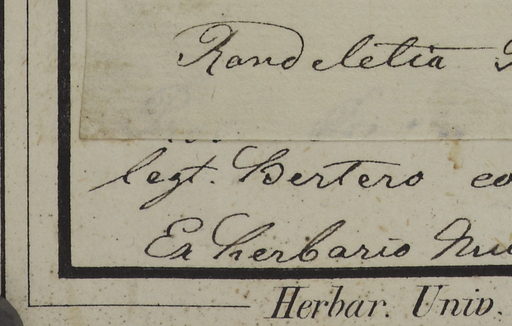 Randeletia
legt. Bertero
Ex herbario
Herbar. Univ.